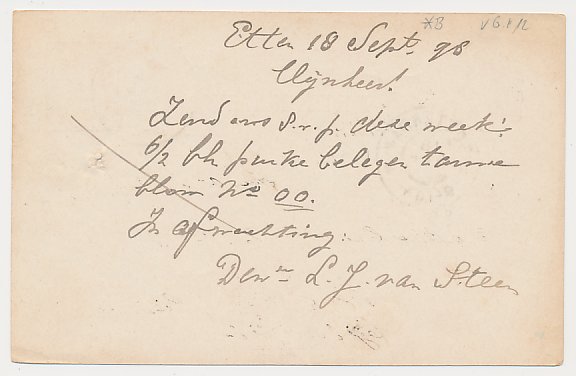 *B VG+12
Etten 18 Sept. 98
Mijnheer!
Zend ons s.v.p. deze week
6/2 bh puike belegen tarwe
bloem No 00.
In afwachting:
Dew L. J. van Steen